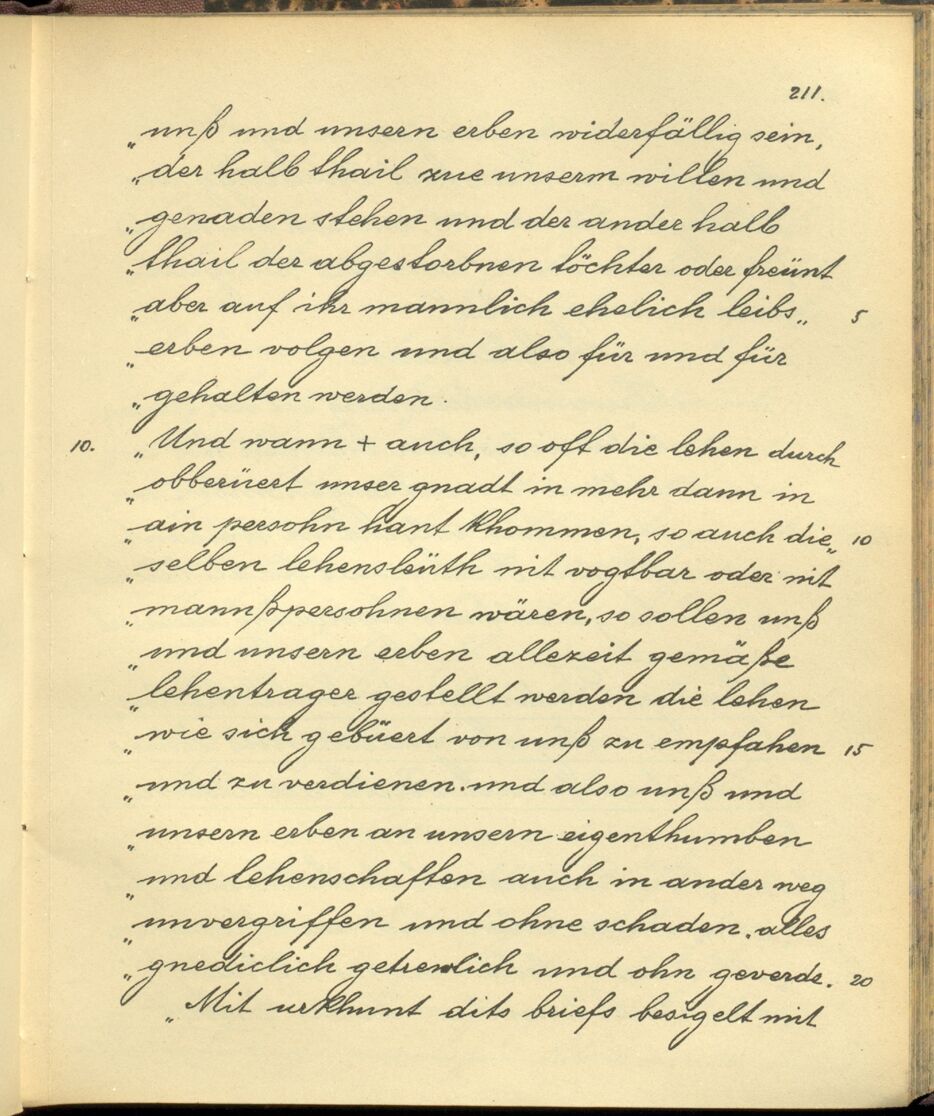 211.
„unß und unsern erben widerfällig sein,
„der halb thail zue unserm willen und
„genaden stehen und der ander halb
„thail der abgestorbnen töchter oder freünt
„aber auf ihr mannlich ehelich leibs„ 5
„erben volgen und also für und für
„gehalten werden.
10. „Und wann + auch, so oft die lehen durch
„obberüert unser gnadt in mehr dann in
„ain persohn hant khommen, so auch die„ 10
„selben lehensleüth nit vogtbar oder nit
„mannßpersohnen wären, so sollen unß
„und unsern erben allezeit gemäße
„lehentrager gestellt werden die lehen
„wie sich gebüert von unß zu empfahen 15
„und zu verdienen. und also unß und
„unsern erben an unsern eigenthumben
„und lehenschaften auch in ander weg
„unvergriffen und ohne schaden. alles
„gnediclich getrewlich und ohn geverde. 20
„Mit urkhunt dits briefs besigelt mit